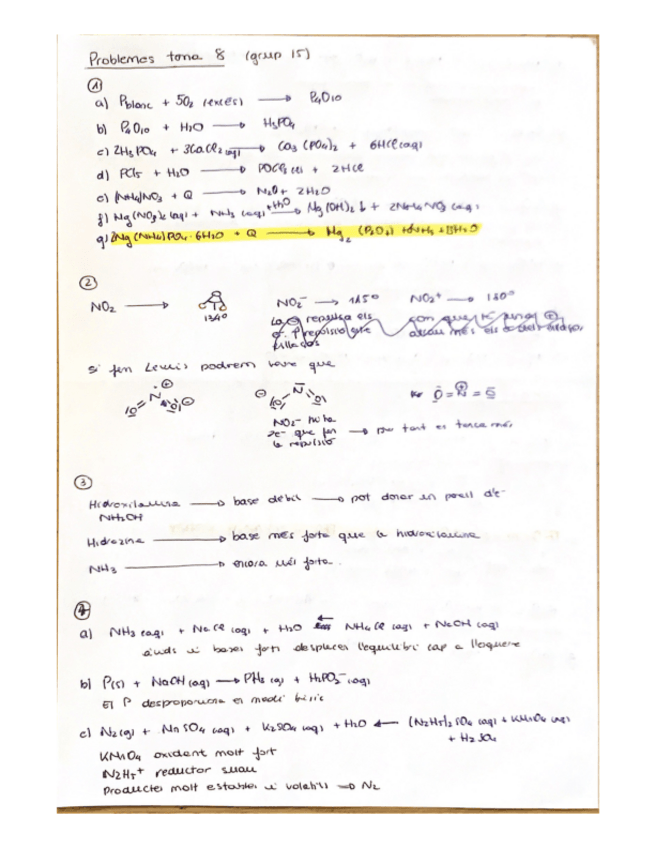 Problemes tema 8 (grup 15)
①
a) Pblanc + 5O2 (excés) → P4O10
b) P4O10 + H2O → H3PO4
c) 2H3PO4 + 3CaCl2 (aq) → Ca3(PO4)2 + 6HCl (aq)
d) PCl5 + H2O → POCl3 (l) + 2HCl
e) (NH4)NO3 + Q → N2O + 2H2O
f) Mg(NO3)2 (aq) + NH3 (aq) +H2O → Mg(OH)2 ↓ + 2NH4NO3 (aq)
g) 2Mg(NH4)PO4·6H2O + Q → Mg2 (P2O7) +
②
NO2 → 134º NO2⁻ → 115º NO2⁺ → 180º
La ⊖ repulsa els
Si fem Lewis podrem veure que
⊕ N O O ⊖ ⊖ O N O Ö = N⊕ = O
NO2⁻ hi ha
2e⁻ que fan → per tant es tanca més
la repulsió
③
Hidroxilamina → base dèbil → pot donar un parell d'e⁻
NH2OH
Hidrazina → base més forta que la hidroxilamina
NH3 → encara més forta.
④
a) NH3 (aq) + NaCl (aq) + H2O ⇐ NH4Cl (aq) + NaOH (aq)
àcids i bases forts desplacen l'equilibri cap a l'esquerre
b) P(s) + NaOH (aq) → PH3 (g) + H2PO2⁻ (aq)
El P desproporciona en medi bàsic
c) N2 (g) + MnSO4 (aq) + K2SO4 (aq) + H2O ← (N2H5)2SO4 (aq) + KMnO4 (aq)
+ H2SO4
KMnO4 oxidant molt fort
N2H5⁺ reductor suau
Productes molt estables i volàtils → N2